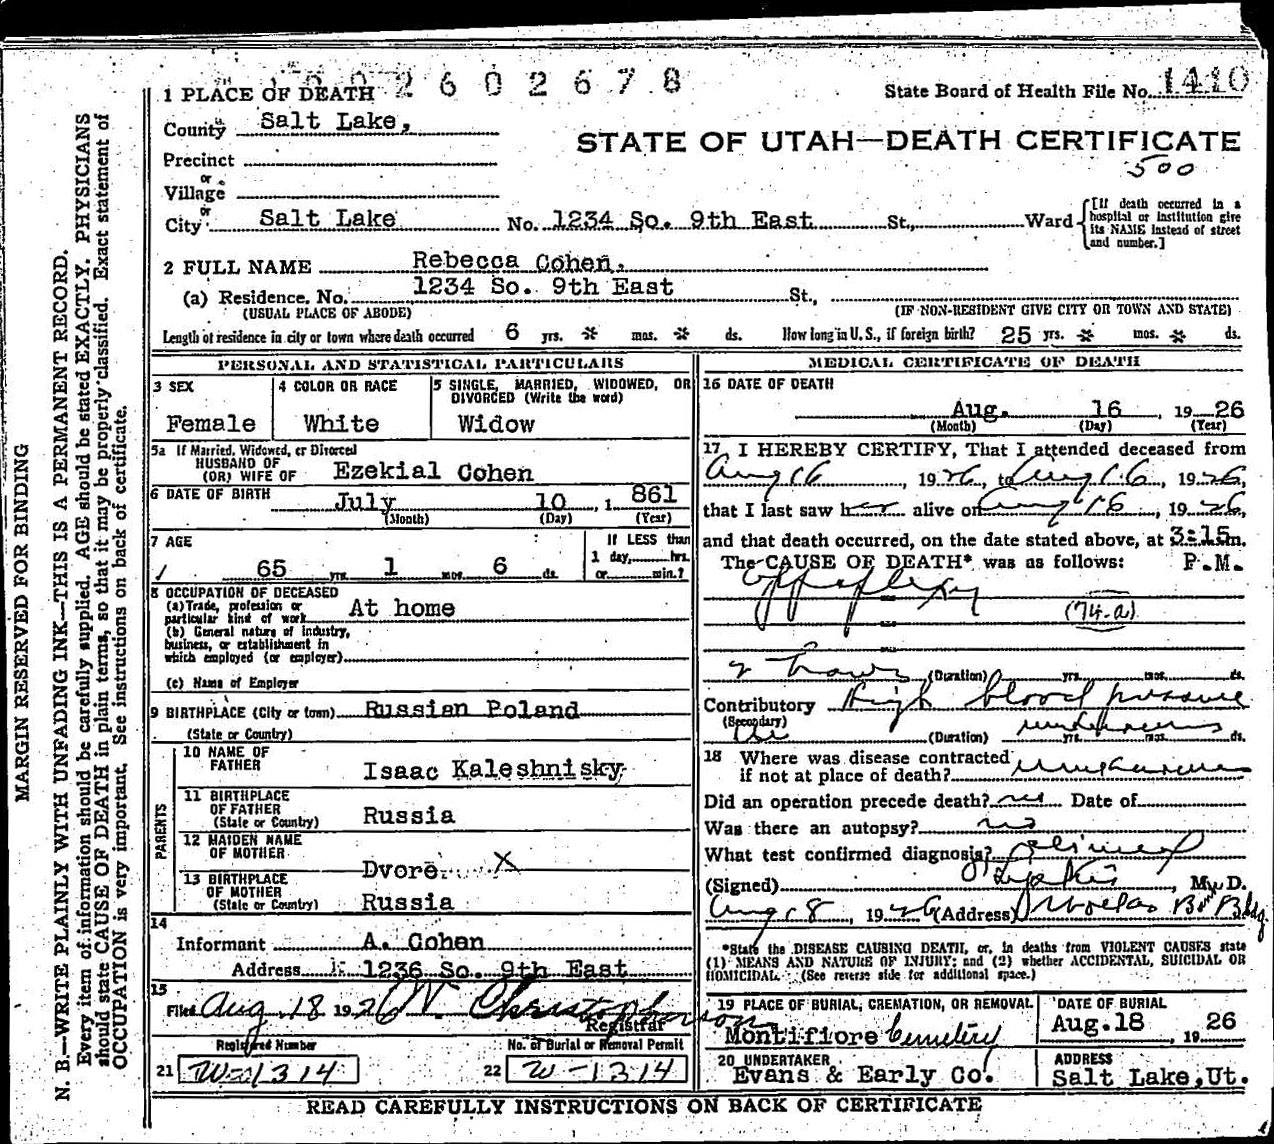 2602678
State Board of Health File No. 1410
1 PLACE OF DEATH
County Salt Lake,
STATE OF UTAH—DEATH CERTIFICATE
500
Precinct
or
Village
or
City Salt Lake No. 1234 So. 9th East St., Ward
[If death occurred in a hospital or institution give its NAME instead of street and number.]
2 FULL NAME Rebecca Cohen,
(a) Residence, No. 1234 So. 9th East St.,
(USUAL PLACE OF ABODE) (IF NON-RESIDENT GIVE CITY OR TOWN AND STATE)
Length of residence in city or town where death occurred 6 yrs. * mos. * ds. How long in U. S., if foreign birth? 25 yrs. * mos. * ds.
PERSONAL AND STATISTICAL PARTICULARS
3 SEX
Female
4 COLOR OR RACE
White
5 SINGLE, MARRIED, WIDOWED, OR DIVORCED (Write the word)
Widow
5a If Married, Widowed, or Divorced
HUSBAND OF
(OR) WIFE OF Ezekial Cohen
6 DATE OF BIRTH
July 10, 1861
(Month) (Day) (Year)
7 AGE
65 yrs. 1 mos. 6 ds.
If LESS than
1 day, hrs.
or min.?
8 OCCUPATION OF DECEASED
(a) Trade, profession or
particular kind of work At home
(b) General nature of industry,
business, or establishment in
which employed (or employer)
(c) Name of Employer
9 BIRTHPLACE (City or town) Russian Poland
(State or Country)
PARENTS
10 NAME OF
FATHER Isaac Kaleshnisky
11 BIRTHPLACE
OF FATHER
(State or Country) Russia
12 MAIDEN NAME
OF MOTHER Dvore X
13 BIRTHPLACE
OF MOTHER
(State or Country) Russia
14
Informant A. Cohen
Address 1236 So. 9th East
15
Filed Aug. 18 1926 W. Christopherson
Registrar
Registered Number
21 W-1314
No. of Burial or Removal Permit
22 W-1314
MEDICAL CERTIFICATE OF DEATH
16 DATE OF DEATH
Aug. 16, 1926
(Month) (Day) (Year)
17 I HEREBY CERTIFY, That I attended deceased from
Aug 16, 1926, to Aug 16, 1926,
that I last saw her alive on Aug 16, 1926,
and that death occurred, on the date stated above, at 3:15 m.
The CAUSE OF DEATH* was as follows: P.M.
Apoplexy
(74-a)
2 hours (Duration) yrs. mos. ds.
Contributory High blood pressure
(Secondary)
(Duration) unknown yrs. mos. ds.
18 Where was disease contracted
if not at place of death? unknown
Did an operation precede death? no Date of
Was there an autopsy? no
What test confirmed diagnosis? Clinical
(Signed) M. D.
Aug 18, 1926 (Address) Bldg
*State the DISEASE CAUSING DEATH, or, in deaths from VIOLENT CAUSES state
(1) MEANS AND NATURE OF INJURY; and (2) whether ACCIDENTAL, SUICIDAL OR
HOMICIDAL. (See reverse side for additional space.)
19 PLACE OF BURIAL, CREMATION, OR REMOVAL
Montifiore Cemetery
DATE OF BURIAL
Aug. 18, 1926
20 UNDERTAKER
Evans & Early Co.
ADDRESS
Salt Lake, Ut.
READ CAREFULLY INSTRUCTIONS ON BACK OF CERTIFICATE
MARGIN RESERVED FOR BINDING
N. B.—WRITE PLAINLY WITH UNFADING INK—THIS IS A PERMANENT RECORD.
Every item of information should be carefully supplied. AGE should be stated EXACTLY. PHYSICIANS
should state CAUSE OF DEATH in plain terms, so that it may be properly classified. Exact statement of
OCCUPATION is very important. See instructions on back of certificate.